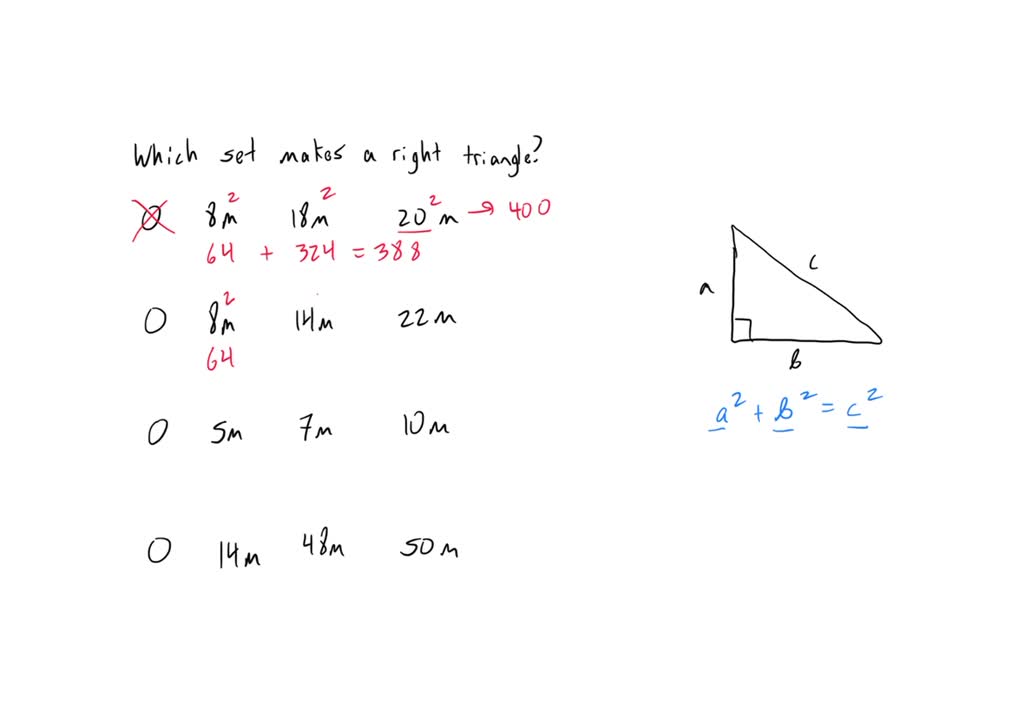 Which set makes a right triangle?
O 8m² 18m² 20²m → 400
64 + 324 = 388
O 8m² 14m 22m
64
O 5m 7m 10m
O 14m 48m 50m
a
c
b
a² + b² = c²